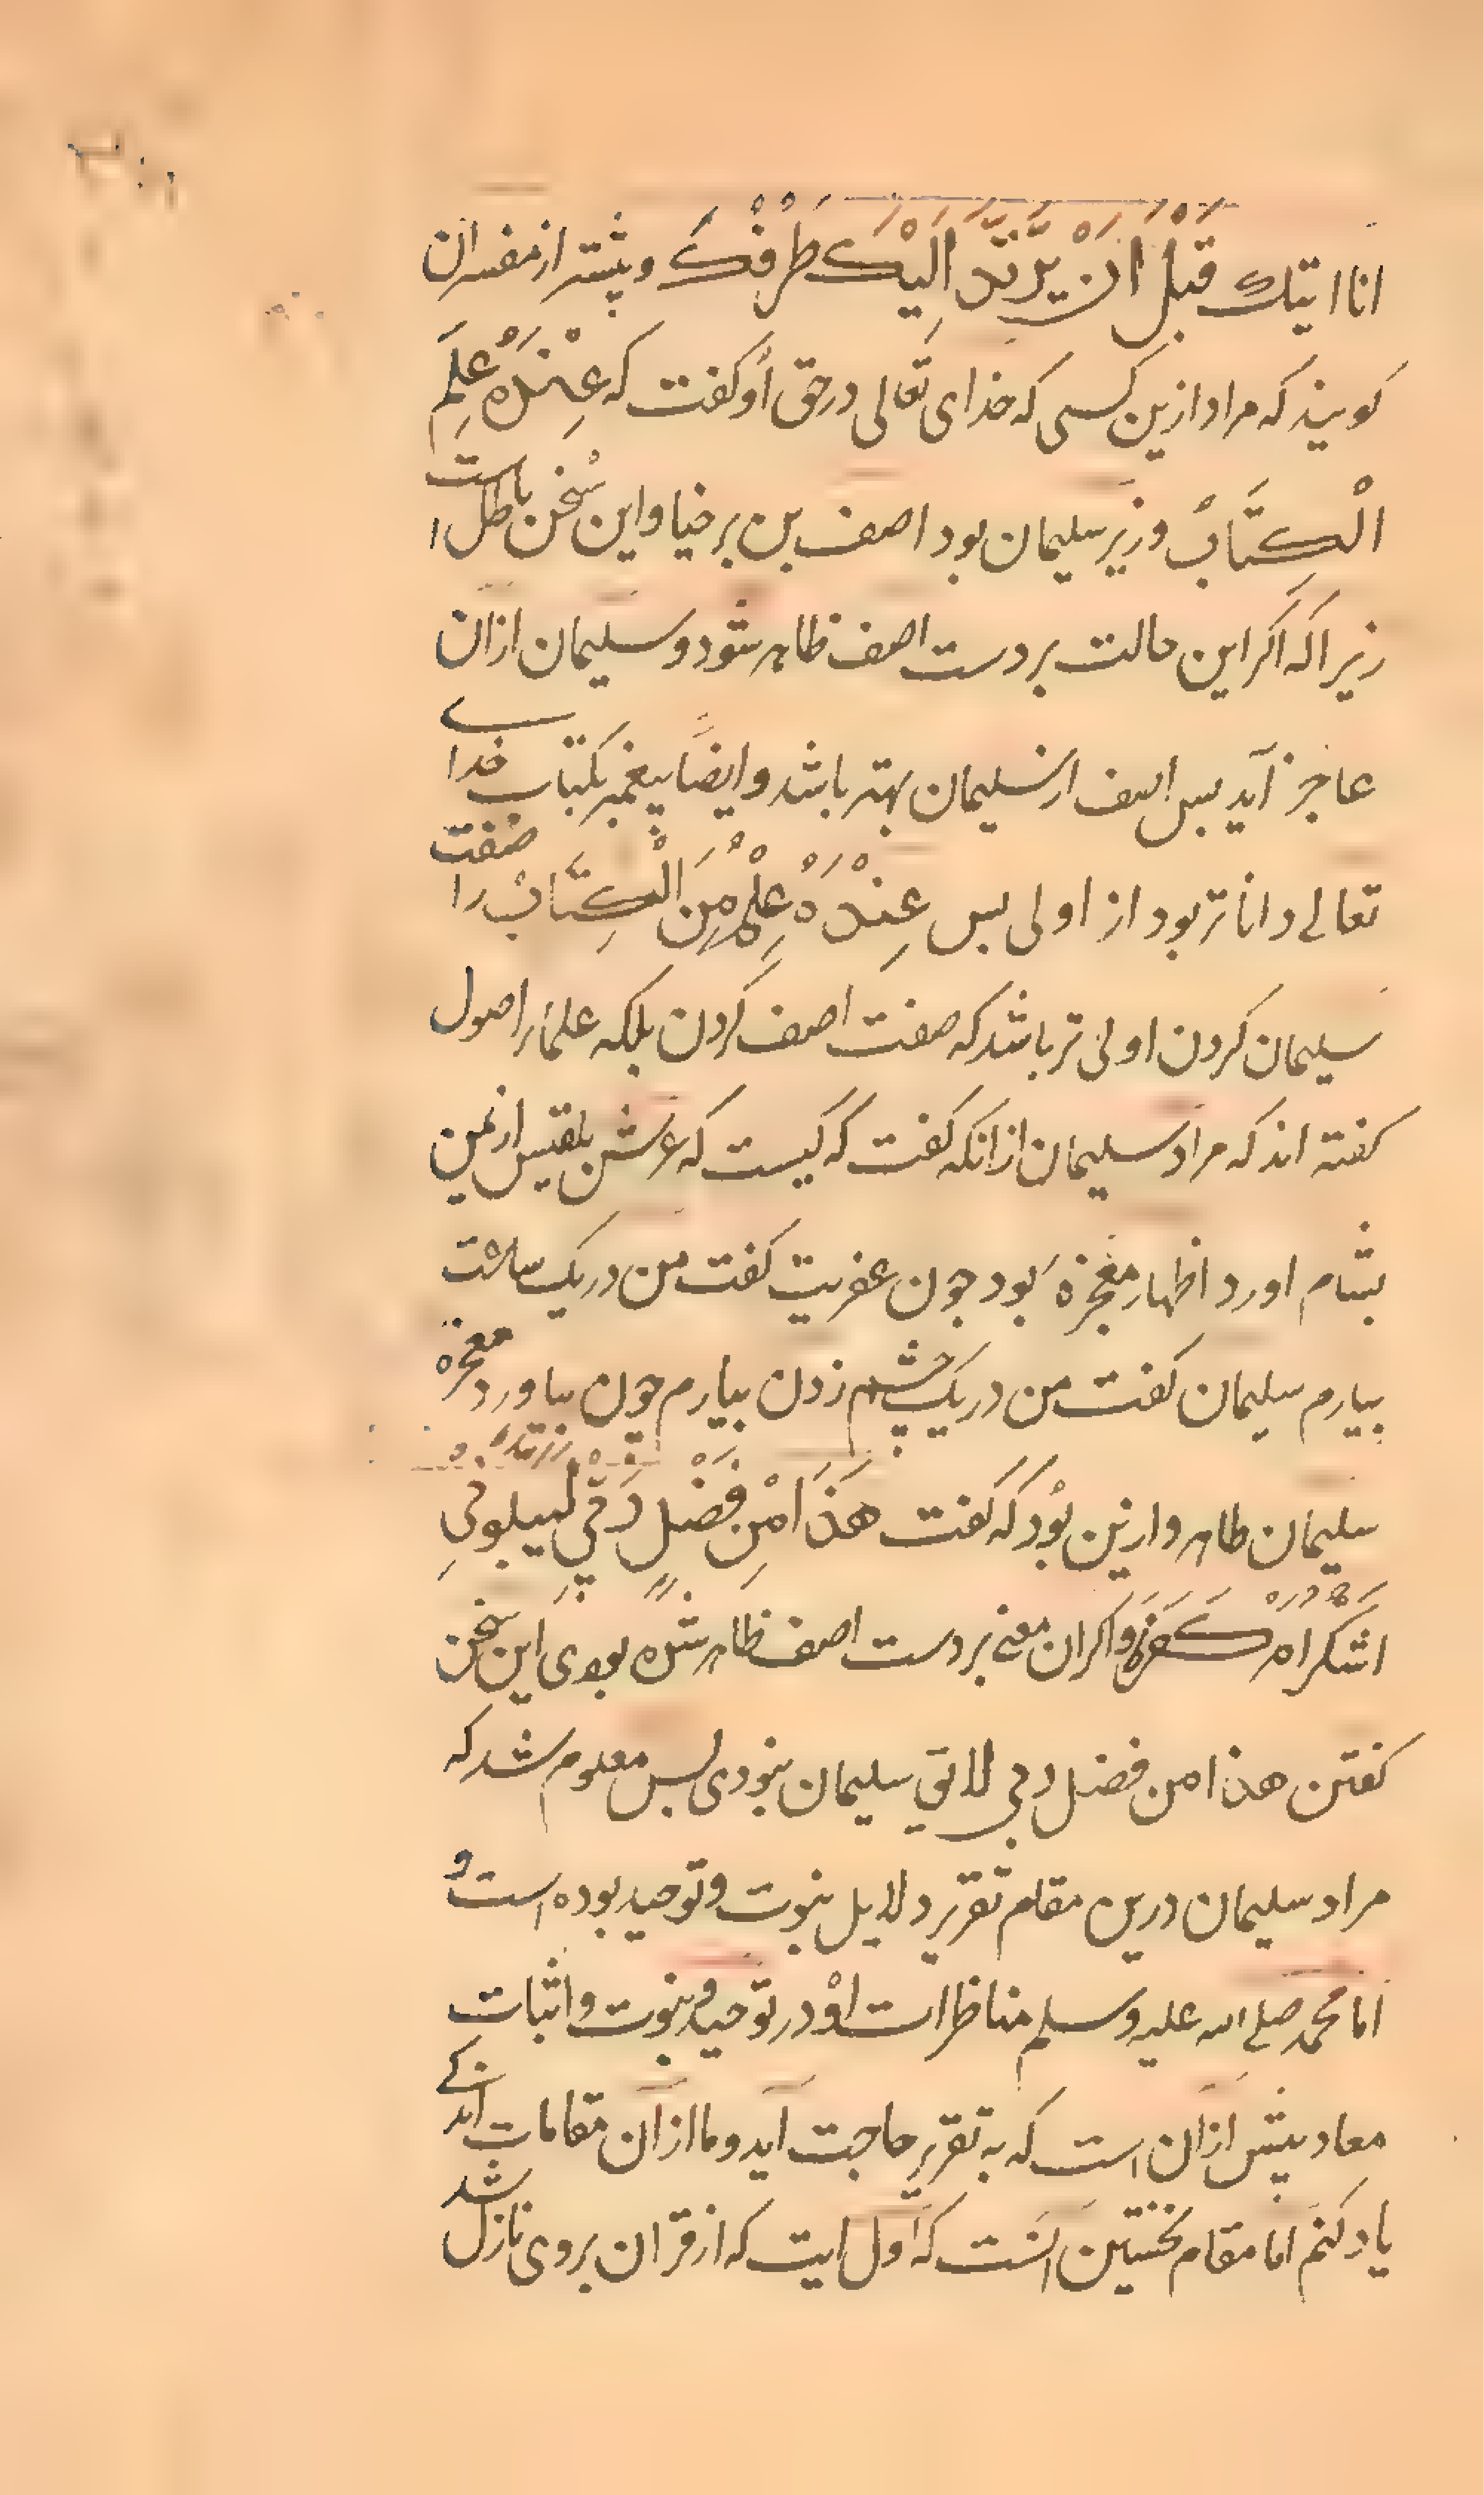 انا اتیک قَبْلَ اَنْ یَّرْتَدَّ اِلَیْکَ طَرْفُکَ و بیشتر از مفسران
کویند که مراد ازین کسی که خدای تعالی در حق او کفت که عِنْدَهُ عِلْمٌ
الْکِتَابْ وزیر سلیمان بود اصف بن برخیا و این سخن باطل است
زیرا که اکر این حالت بر دست اصف ظاهر شود و سلیمان ازان
عاجز آید بس اصف از سلیمان بهتر باشد و ایضاً پیغمبر بکتاب خدای
تعالی داناتر بود از اولی بس عِنْدَهُ عِلْمٌ مِنَ الْکِتَابْ را صفت
سلیمان کردن اولی تر باشد که صفت اصف کردن بلکه علمای اصول
کفته اند که مراد سلیمان از انکه کفت که کیست که عرش بلقیس از یمن
بشام اورد اظهار معجزه بود جون عفریت کفت من در یک ساعت
بیارم سلیمان کفت من در یک چشم زدن بیارم جون بیاورد معجزه
سلیمان ظاهر و ازین بود که کفت هَذَا مِنْ فَضْلِ رَبِّی لِیَبْلُوَنِی
اشکر ام کفر و اکر ان معنی بر دست اصف ظاهر شده بودی این سخن
کفتن هذا من فضل ربی لائق سلیمان نبودی بس معلوم شد که
مراد سلیمان درین مقام تقریر دلایل نبوت و توحید بوده است و
اما محمد صلی الله علیه وسلم مناظرات او در توحید و نبوت و اثبات
معاد بیش ازان است که به تقریر حاجت آید و ما ازان مقامات اندکی
یاد کنم اما مقام نخستین انست که اول ایت که از قران بروی نازل شد